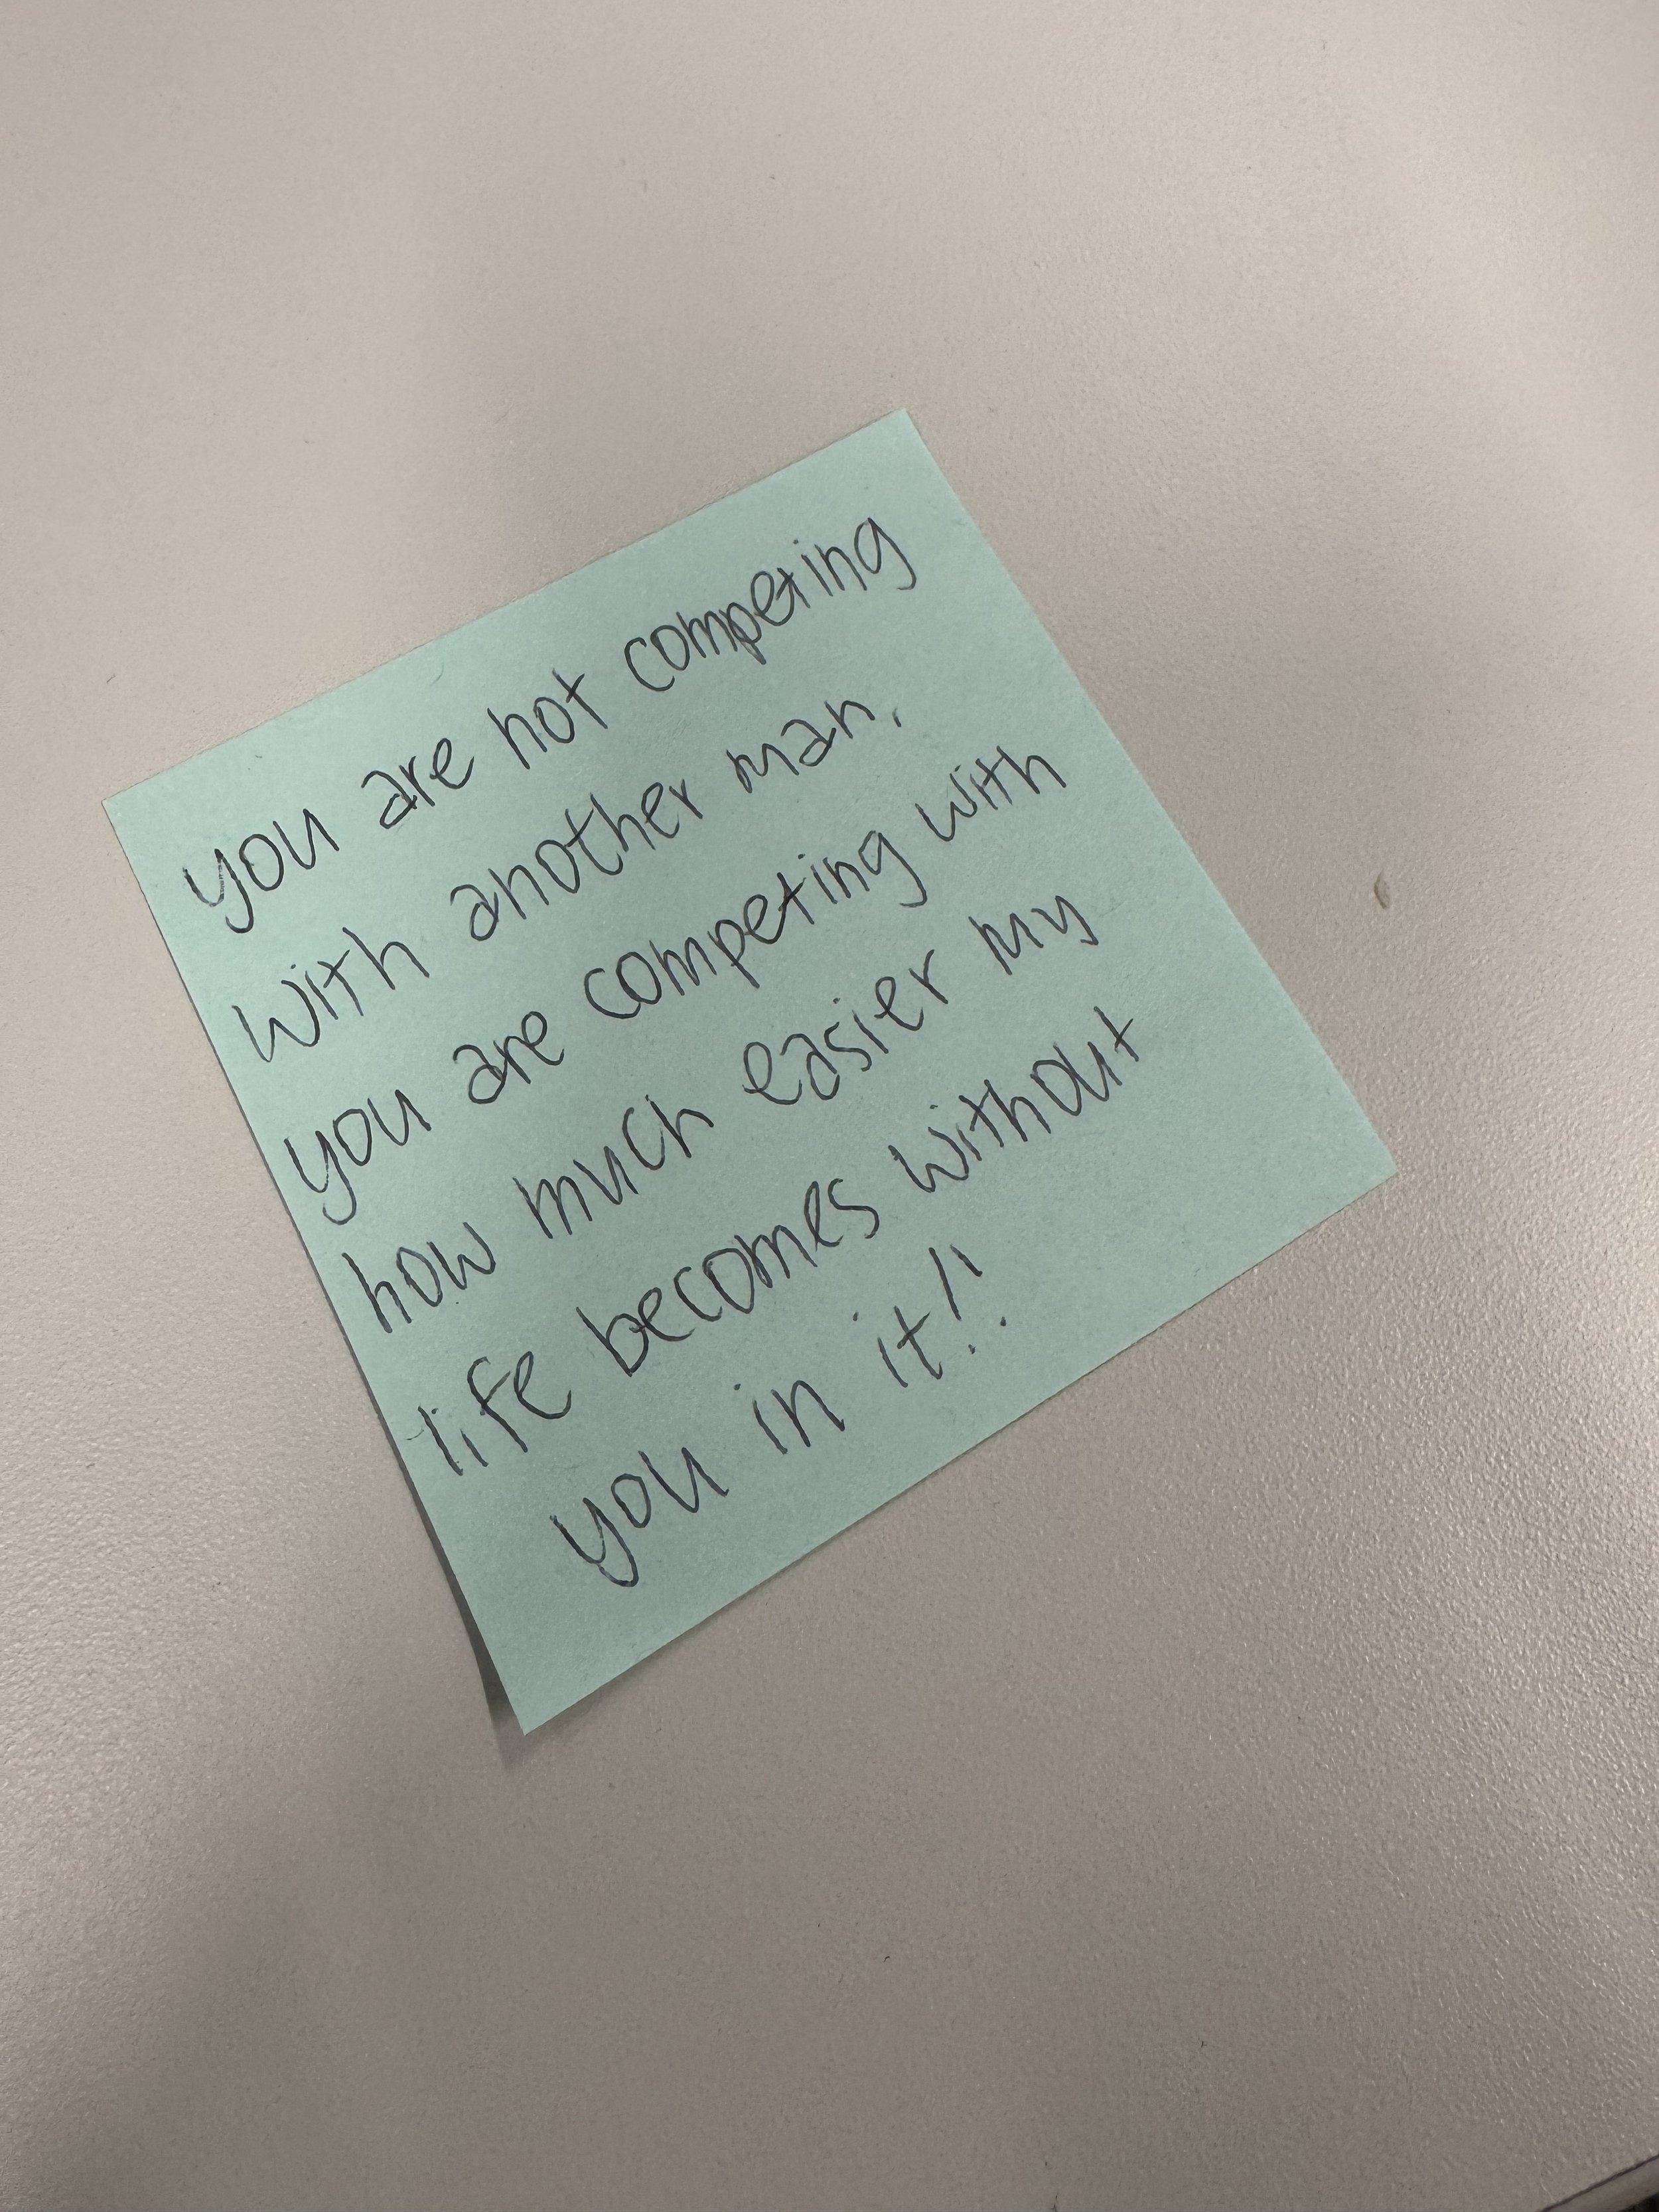 you are not competing
with another man.
you are competing with
how much easier my
life becomes without
you in it!!